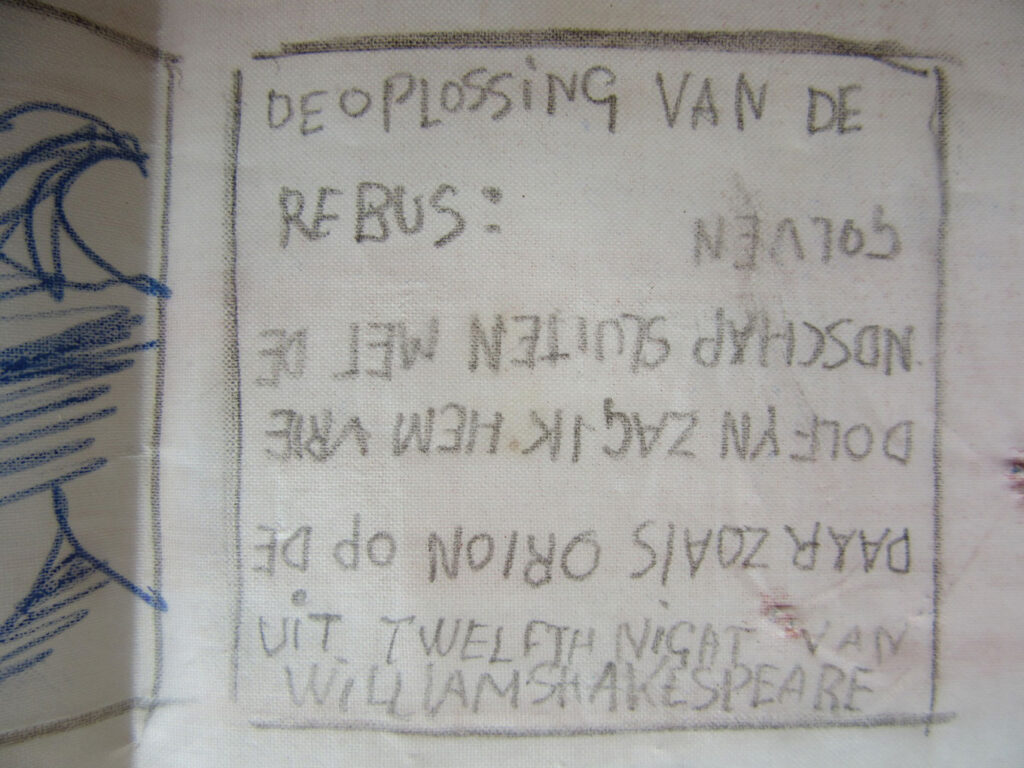 DEOPLOSSiNG VAN DE
REBUS:
DAAR ZOAlS ORION OP DE
DOLFYN ZAG IK HEM VRIE
NDSCHAP SLUITEN MET DE
GOLVEN
UiT TWELFTH NiGHT VAN
WiLLIAM SHAKESPEARE